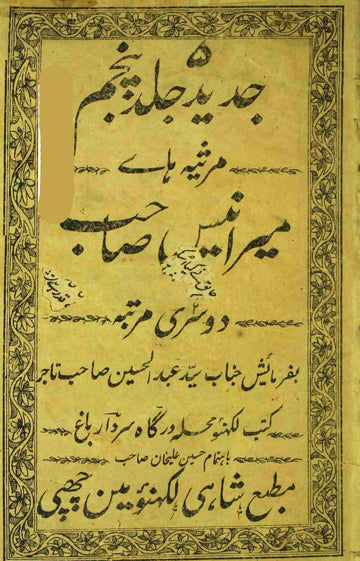 ۵
جدید جلد پنجم
مرثیہ ہاے
میر انیس صاحب
دوسری مرتبہ
بفرمائش جناب سید عبد الحسین صاحب تاجر
کتب لکھنؤ محلہ درگاہ سردار باغ
باہتمام حسین علیخان صاحب
مطبع شاہی لکھنؤ مین چھپی